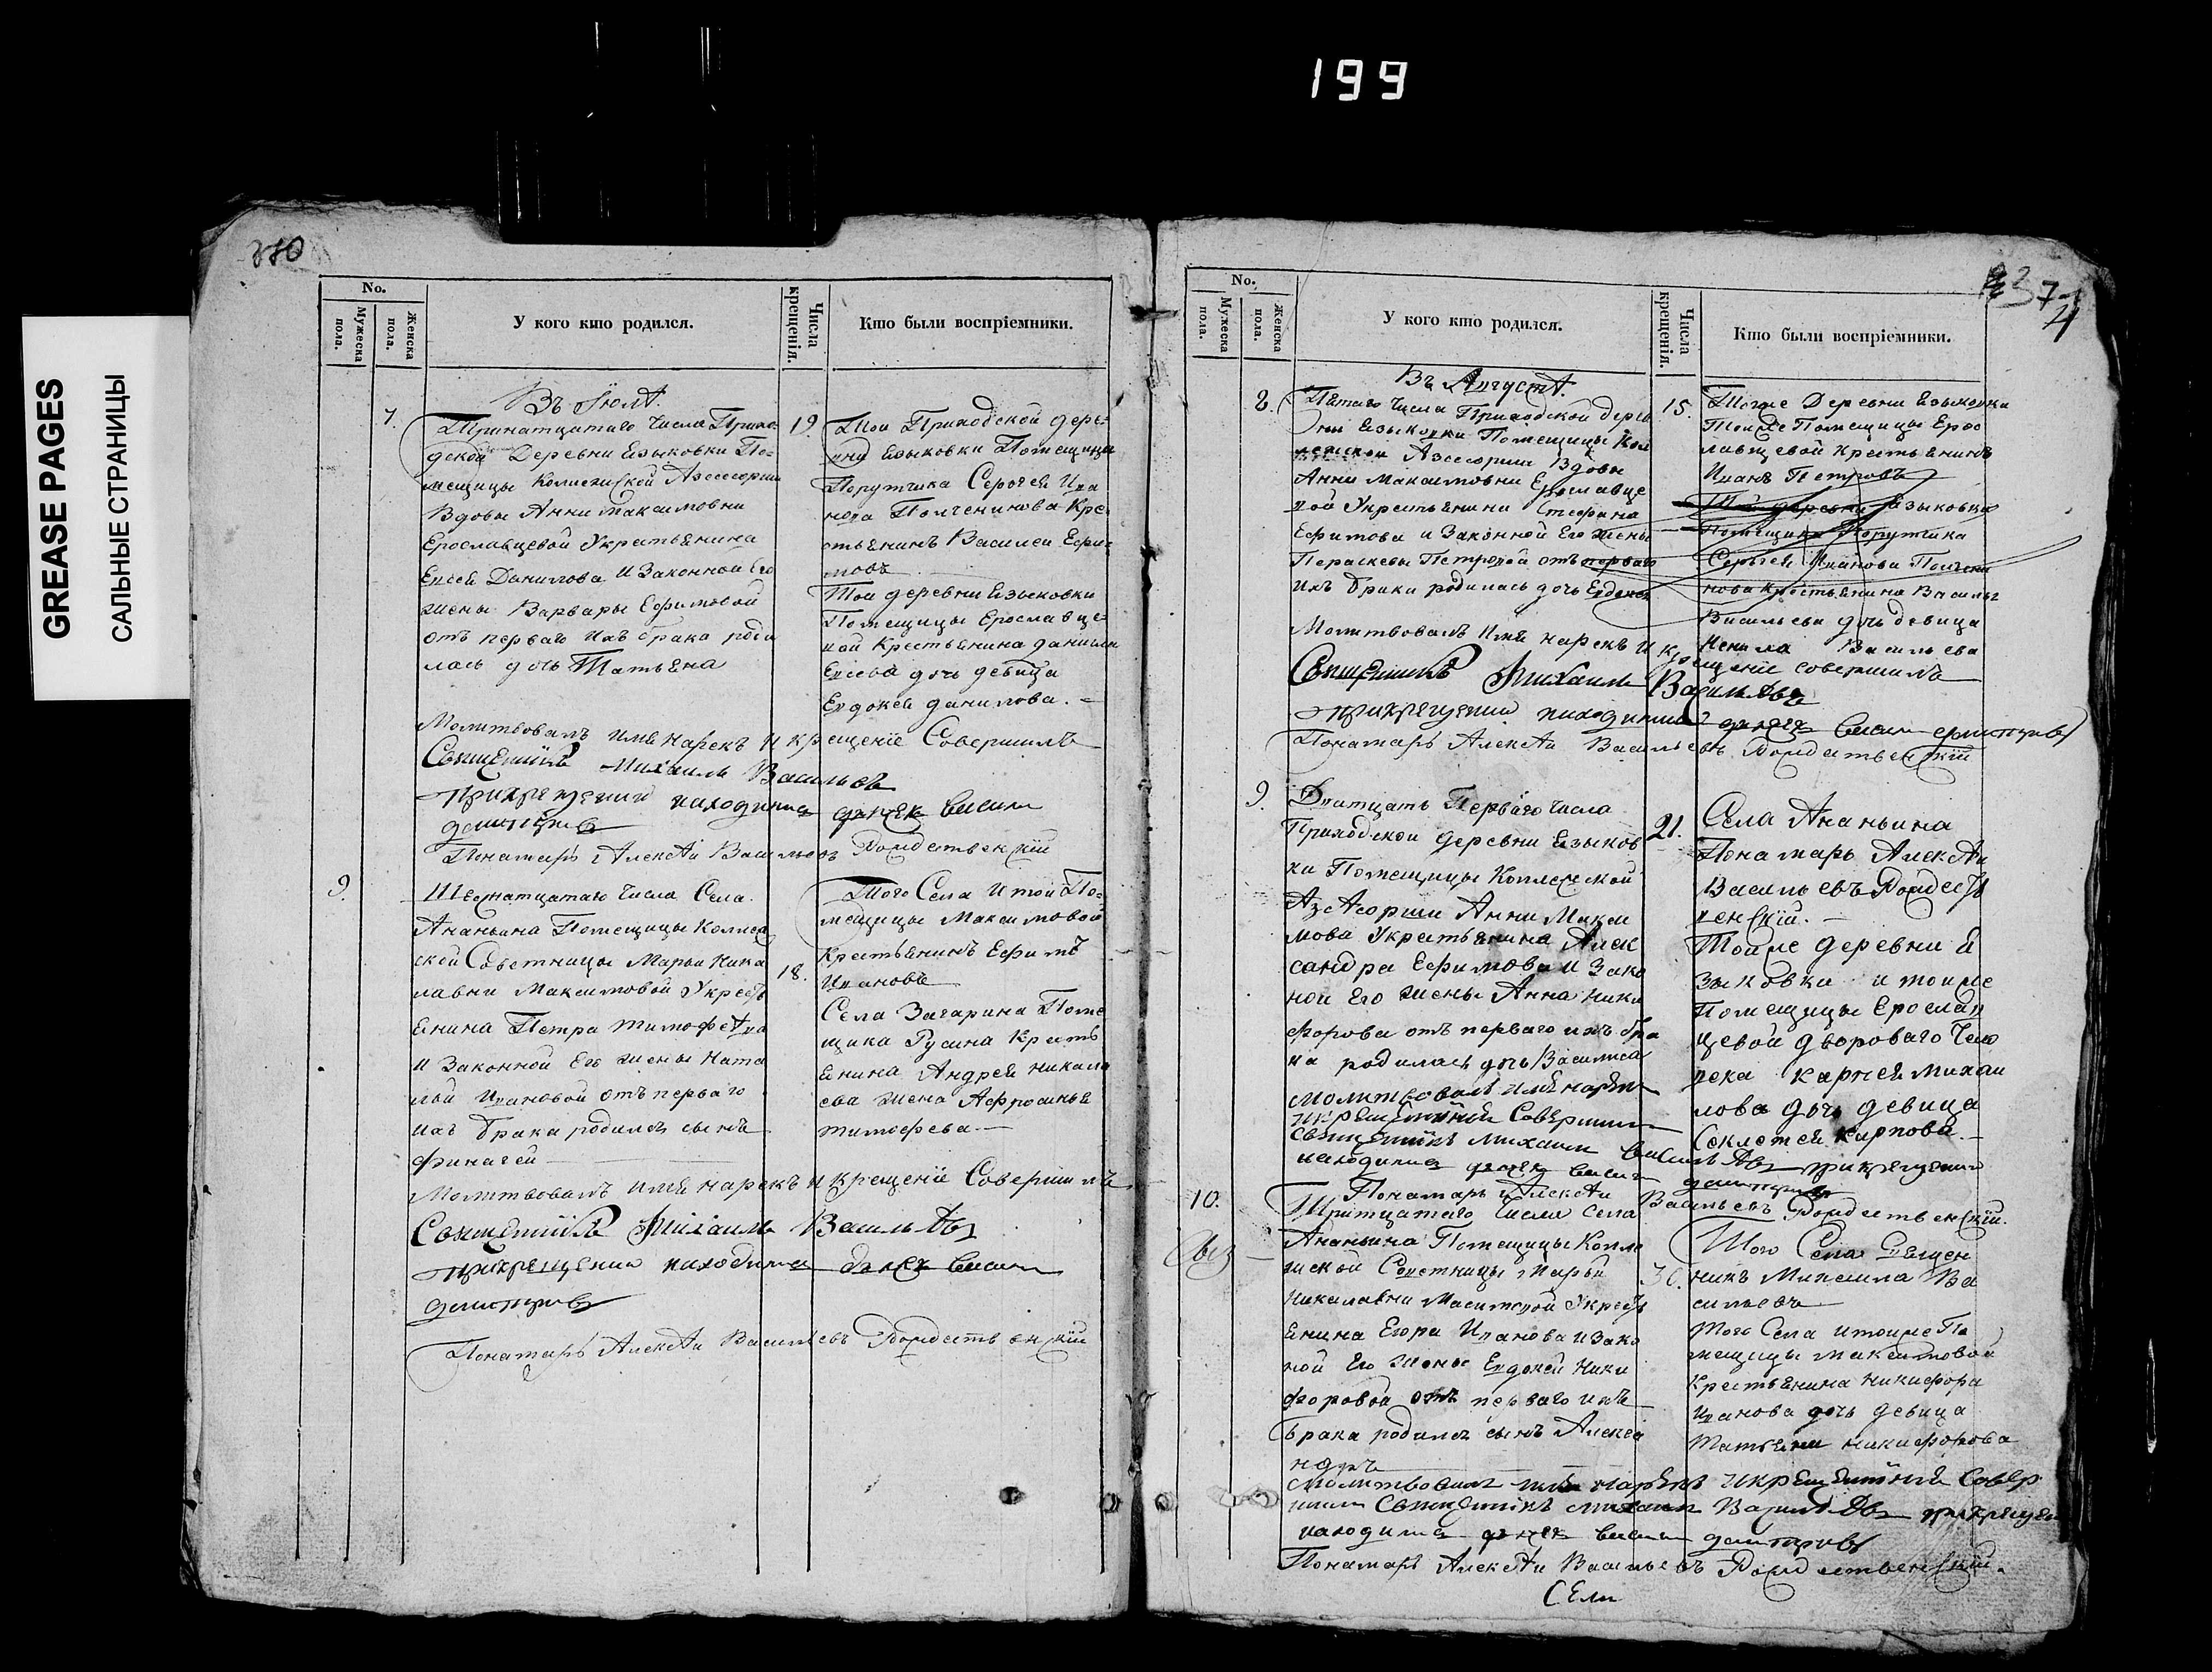 199
GREASE PAGES
САЛЬНЫЕ СТРАНИЦЫ
No.
Мужеска пола.
Женска пола.
У кого кто родился.
Числа крещенія.
Кто были воспріемники.
Въ Іюлѣ
7.
Тринатцатаго Числа Прихо-
дской Деревни Езыковки По-
мещицы Колежской Азесорши
Вдовы Анны Максимовны
Ерославцевой Укрестьянина
Данилова И Законной Его
жены Варвары Ефимовой
отъ перваго Ихъ брака роди
лась дочь Татьяна
19.
Той Приходской дере-
вни Езыковки Помещика
Порутчика Сергея Ива
нова Полченинова Кре-
стьянинъ Василей Ефи-
мовъ
Той деревни Езыковки
Помещицы Ерославце-
вой Крестьянина данилы
дочь девица
Евдокея данилова.
Молитвовалъ имя нарекъ и крещеніе Совершилъ
Священникъ Михаилъ Васильевъ
При крещении находился дьячек Васили
дмитриев
Понамарь Алексѣй Васильевъ Рождественскій
9.
Шеснатцатаго Числа Села
Ананьина Помещицы Колеж
ской Советницы Марьи Нико
лавны Максимовой Укресть
янина Петра Тимофѣева
И Законной Его жены Ната
льи Ивановой отъ перваго
ихъ брака родился сынъ
18.
Того Села И той По-
мещицы Максимовой
Крестьянинъ Ефимъ
Ивановъ
Села Загарина Поме
щика Русина Кресть
янина Андрея Никола
ева жена Афросинья
Тимофеева.
Молитвовалъ имя нарекъ и Крещеніе Совершилъ
Священникъ Михаилъ Васильевъ
При крещении находился дьячек Васили
дмитриев
Понамарь Алексѣй Васильевъ Рождественскій
No.
Мужеска пола.
Женска пола.
У кого кто родился.
Числа крещенія.
Кто были воспріемники.
Въ Августѣ.
8.
Пятаго Числа Приходской дерев
ни Езыковки Помещицы Кол
лежской Азесорши Вдовы
Анны Максимовны Ерославце
вой Укрестьянина Стефана
Ефимова и Законной Его жены
Параскевы Петровой отъ перваго
Ихъ брака родилась дочь
15.
Тойже Деревни Езыковки
Тойже Помещицы Ерос
лавцевой Крестьянинъ
Иванъ Петровъ
Той деревни Езыковки
Помещика Порутчика
Сергея Иванова Полчени
нова Крестьянина Василья
Васильева дочь девица
Ненила Васильева
Молитвовалъ Имя нарекъ и крещеніе совершилъ
Священникъ Михаилъ Васильевъ
При крещении находился дьячек Васили дмитриев
Понамарь Алексѣй Васильевъ Рождественскій
9.
Дватцать Перваго Числа
Приходской деревни Езыков
ки Помещицы Коллежской
Анны Макси
мова Укрестьянина Алек
сандра Ефимова и Зако
ной Его жены Анна Ники
форова отъ перваго ихъ бра
ка родилась дочь Василиса
21.
Села Ананьина
Понамарь Алексѣй
Васильевъ Рождест
венскій.
Тойже деревни Е
зыковки и тойже
Помещицы Ерослав
цевой двороваго Чело
века Карнея Михаи
лова дочь девица
Карпова
Молитвовалъ имя нарекъ
и крещеніе Совершилъ
Священникъ Михаилъ Васильевъ при крещении
находился дьячек Васили дмитриев
Понамарь Алексѣй Васильевъ Рождественскій.
10.
Тритцатаго Числа Села
Ананьина Помещицы Колле
жской Советницы Марьи
Николавны Укресть
янина Егора Иванова и Зако
ной Его жены Евдокеи Ники
форовой отъ перваго ихъ
брака родился сынъ Алекса
ндръ
30.
Того Села Священ
никъ Михаила Ва
сильевъ
Того Села и тойже По
мещицы Максимовой
Крестьянина Никифора
Иванова дочь девица
Татьяна Никифорова
Молитвовалъ имя нарекъ и крещеніе Совер
шилъ Священникъ Михаилъ Васильевъ при крещен
находился дьячек Васили дмитриев
Понамарь Алексѣй Васильевъ Рождественскій.
Сели